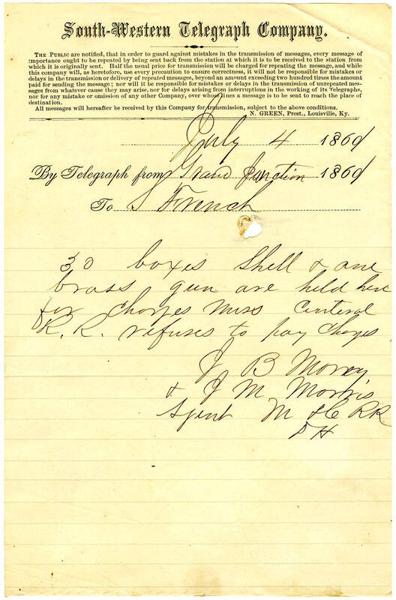 South-Western Telegraph Company.
THE PUBLIC are notified, that in order to guard against mistakes in the transmission of messages, every message of
importance ought to be repeated by being sent back from the station at which it is to be received to the station from
which it is originally sent. Half the usual price for transmission will be charged for repeating the message, and while
this company will, as heretofore, use every precaution to ensure correctness, it will not be responsible for mistakes or
delays in the transmission or delivery of repeated messages, beyond an amount exceeding two hundred times the amount
paid for sending the message; nor will it be responsible for mistakes or delays in the transmission of unrepeated mes-
sages from whatever cause they may arise, nor for delays arising from interruptions in the working of its Telegraphs,
nor for any mistake or omission of any other Company, over whose lines a message is to be sent to reach the place of
destination.
All messages will hereafter be received by this Company for transmission, subject to the above conditions.
N. GREEN, Prest., Louisville, Ky.
July 4 1861
By Telegraph from Grand Junction 1861
To S French
30 boxes shell & one
brass gun are held here
for charges Miss Central
R. R. refuses to pay charges
J B
& J M Morris
Agent M & C RR
D H